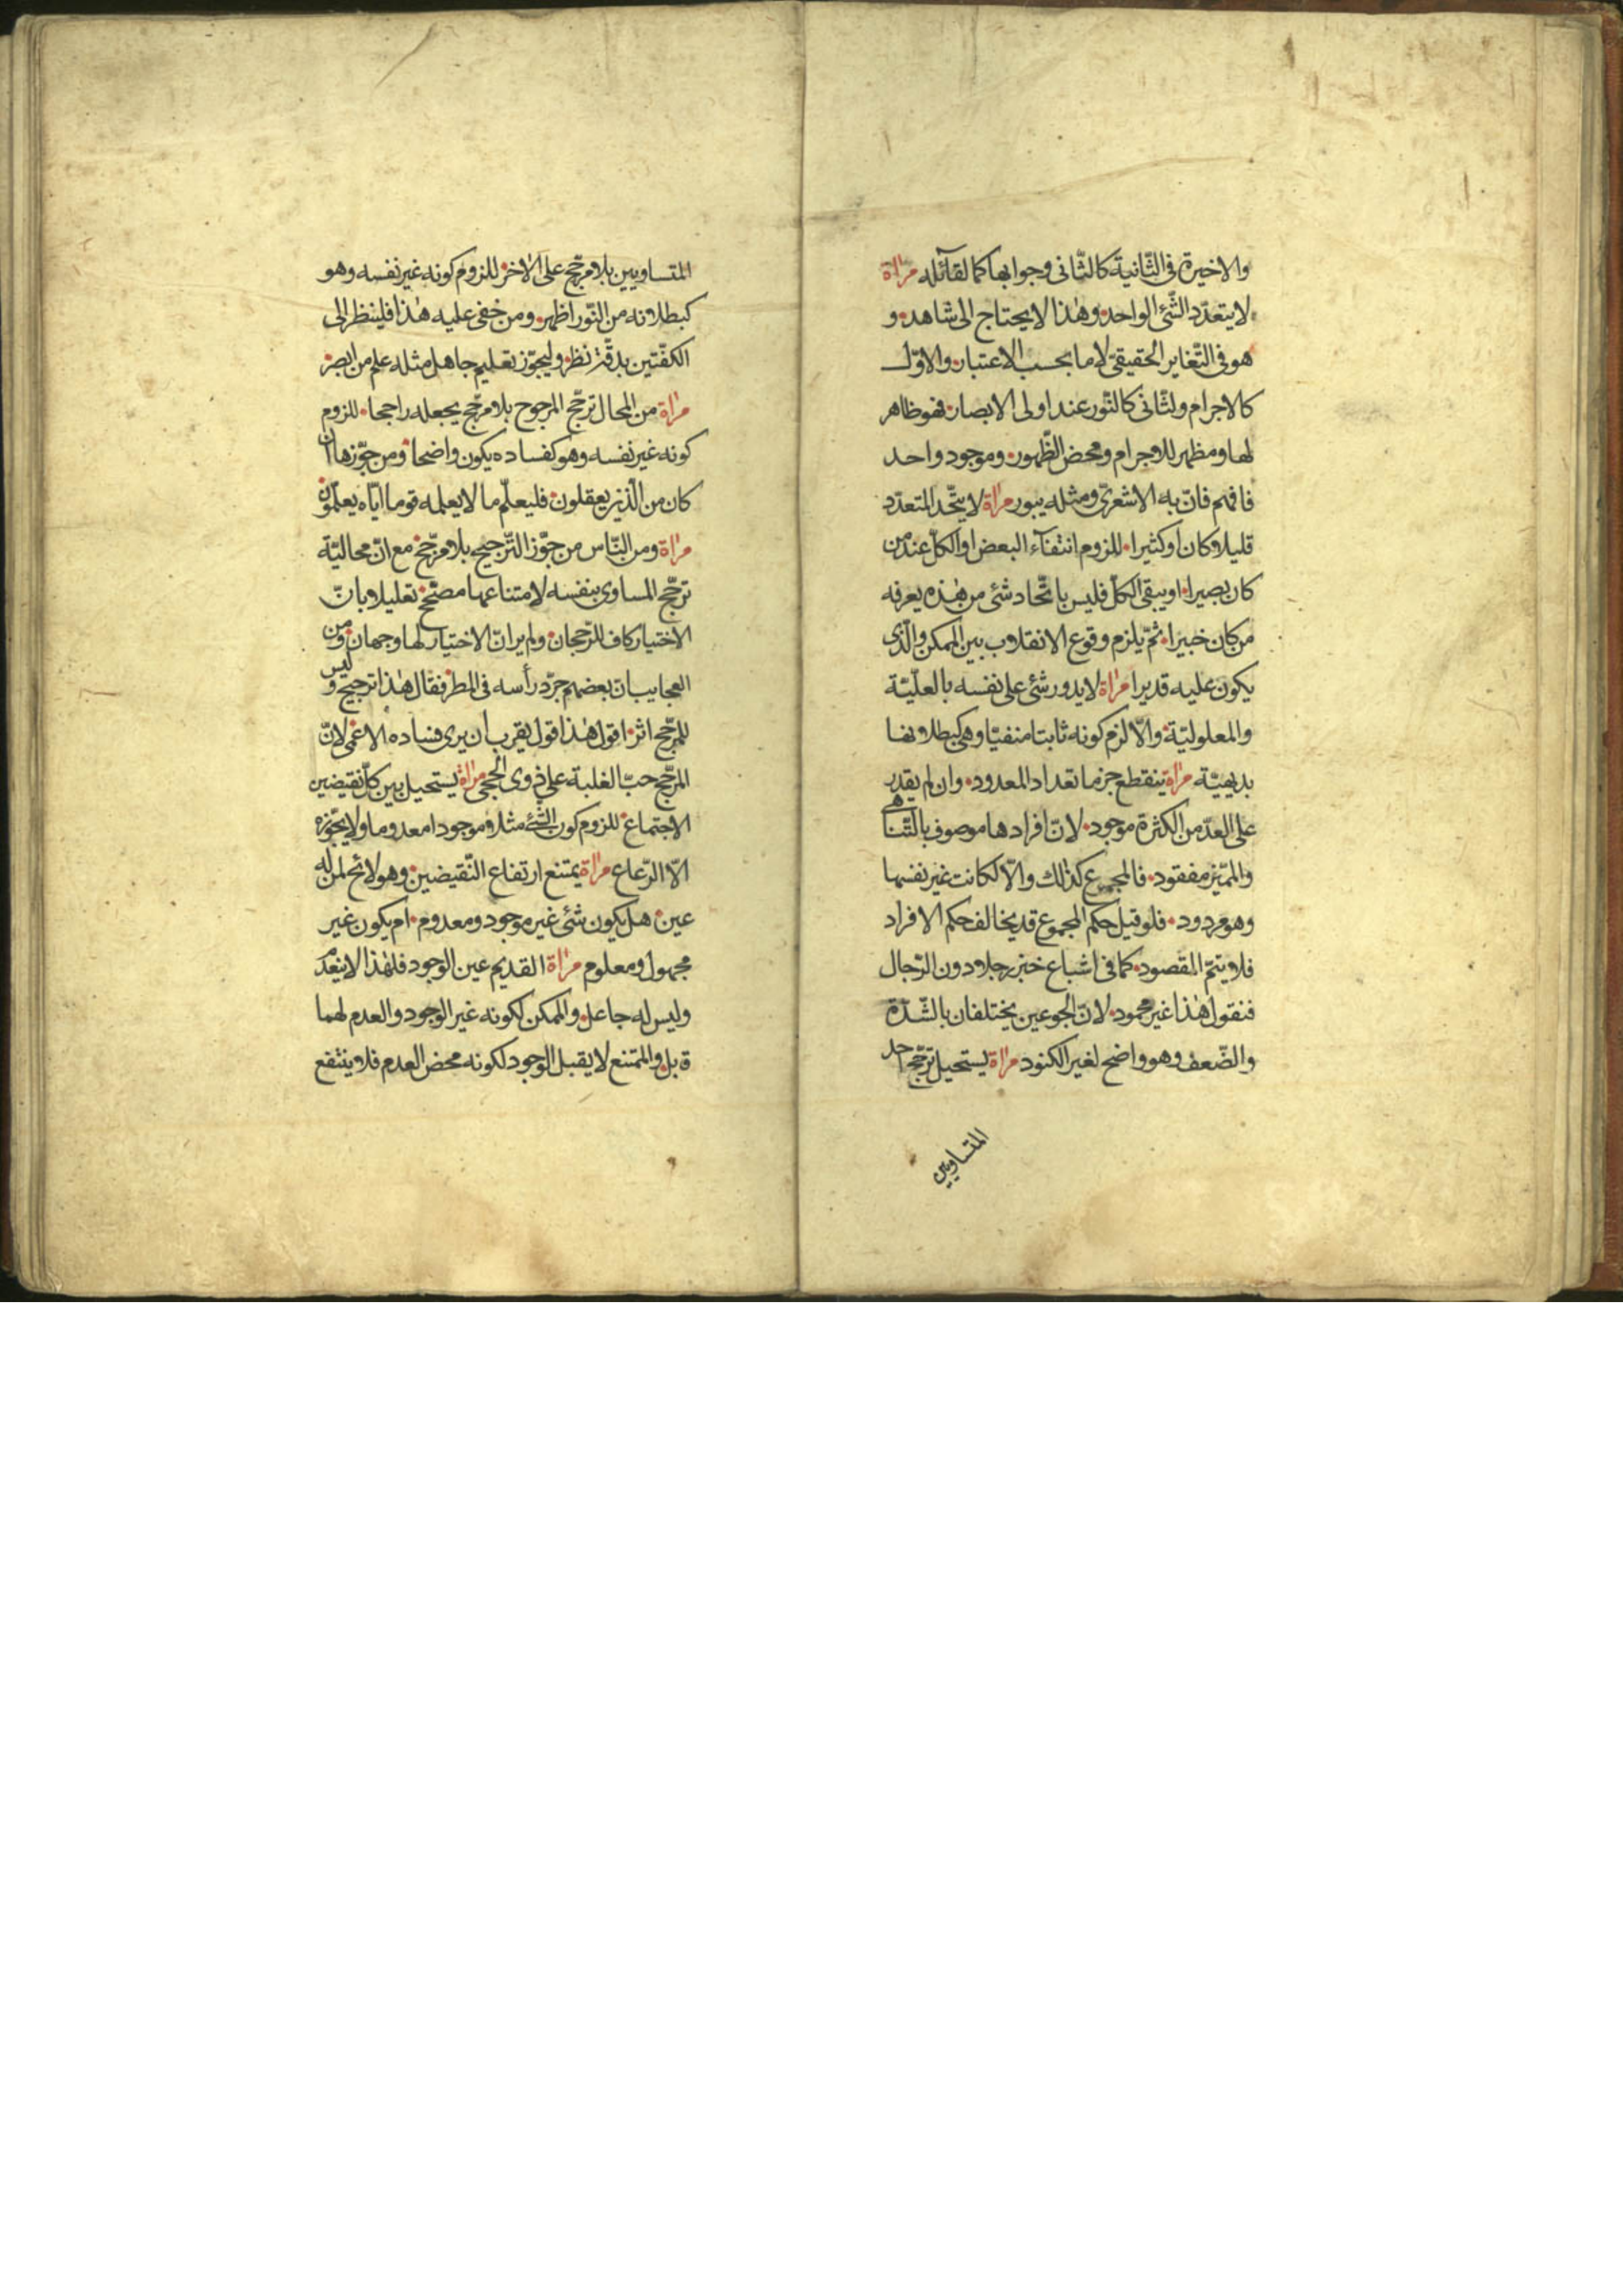 والاخيرة فى الثّانية كالثّانى وجوابها كما لقآئله مرآة
لا يتعدّد الشّئ الواحد وهذا لا يحتاج الى شاهد و
هو فى التّغاير الحقيقى لا ما بحسب الاعتبار والاوّل
كالاجرام ولثّانى كالنّور عند اولى الابصار فهو ظاهر
لها ومظهر للاجرام ومحض الظّهور وموجود واحد
فافهم فانّ به الاشعرىّ ومثله يبور مرآة لا يتّحد المتعدّد
قليلا كان او كثيرا للزوم انتفآء البعض او الكلّ عند من
كان بصيرا او يبقى الكلّ فليس باتّحاد شئ من هذه يعرفه
من كان خبيرا ثمّ يلزم وقوع الانقلاب بين الممكن والّذى
يكون عليه قديرا مرآة لا يدور شئ على نفسه بالعلّيّة
والمعلوليّة والّا لزم كونه ثابتا منفيّا وهى كبطلانها
بديهيّة مرآة ينقطع جزما تعداد المعدود وان لم يقدر
على العدّ من الكثرة موجود لانّ افرادها موصوف بالتّناهى
والمميّز مفقود فالمجموع كذلك والّا لكانت غير نفسها
وهو مردود فلو قيل حكم المجموع قد يخالف حكم الافراد
فلا يتمّ المقصود كما فى اشباع خبز رجلا دون الرّجال
فنقول هذا غير محمود لانّ الجوعين يختلفان بالشّدّة
والضّعف وهو واضح لغير الكنود مرآة يستحيل ترجّح احد
المتساويين
المتساويين بلا مرجّح على الاخر للزوم كونه غير نفسه وهو
كبطلانه من النّور اظهر ومن خفى عليه هذا فلينظر الى
الكفّتين بدقّة نظر وليجوّز تعليم جاهل مثله علم من ابصر
مرآة من المحال ترجّح المرجوح بلا مرجّح يجعله راجحا للزوم
كونه غير نفسه وهو كفساده يكون واضحا ومن جوّزها ان
كان من الّذين يعقلون فليعلّم ما لا يعلمه قوما ايّاه يعلّمون
مرآة ومن النّاس من جوّز التّرجيح بلا مرجّح مع انّ محاليّة
ترجّح المساوى بنفسه لامتناعها مصحّح تعليلا بانّ
الاختيار كاف للرّجحان ولم ير انّ الاختيار لها وجهان ومن
العجايب انّ بعضهم جرّد رأسه فى المطر فقال هذا ترجيح وليس
للمرجّح اثر اقول هذا قول يقرب ان يرى فساده الاعمى لانّ
المرجّح حبّ الغلبة على ذوى الحجى مرآة يستحيل بين كلّ نقيضين
الاجتماع للزوم كون الشّئ مثلا موجودا معدوما ولا يجوّزه
الّا الرّعاع مرآة يمتنع ارتفاع النّقيضين وهو لائح لمن له
عين هل يكون شئ غير موجود ومعدوم ام يكون غير
مجهول ومعلوم مرآة القديم عين الوجود فلهذا لا ينعدم
وليس له جاعل والممكن لكونه غير الوجود والعدم لهما
قابل والممتنع لا يقبل الوجود لكونه محض العدم فلا ينتفع